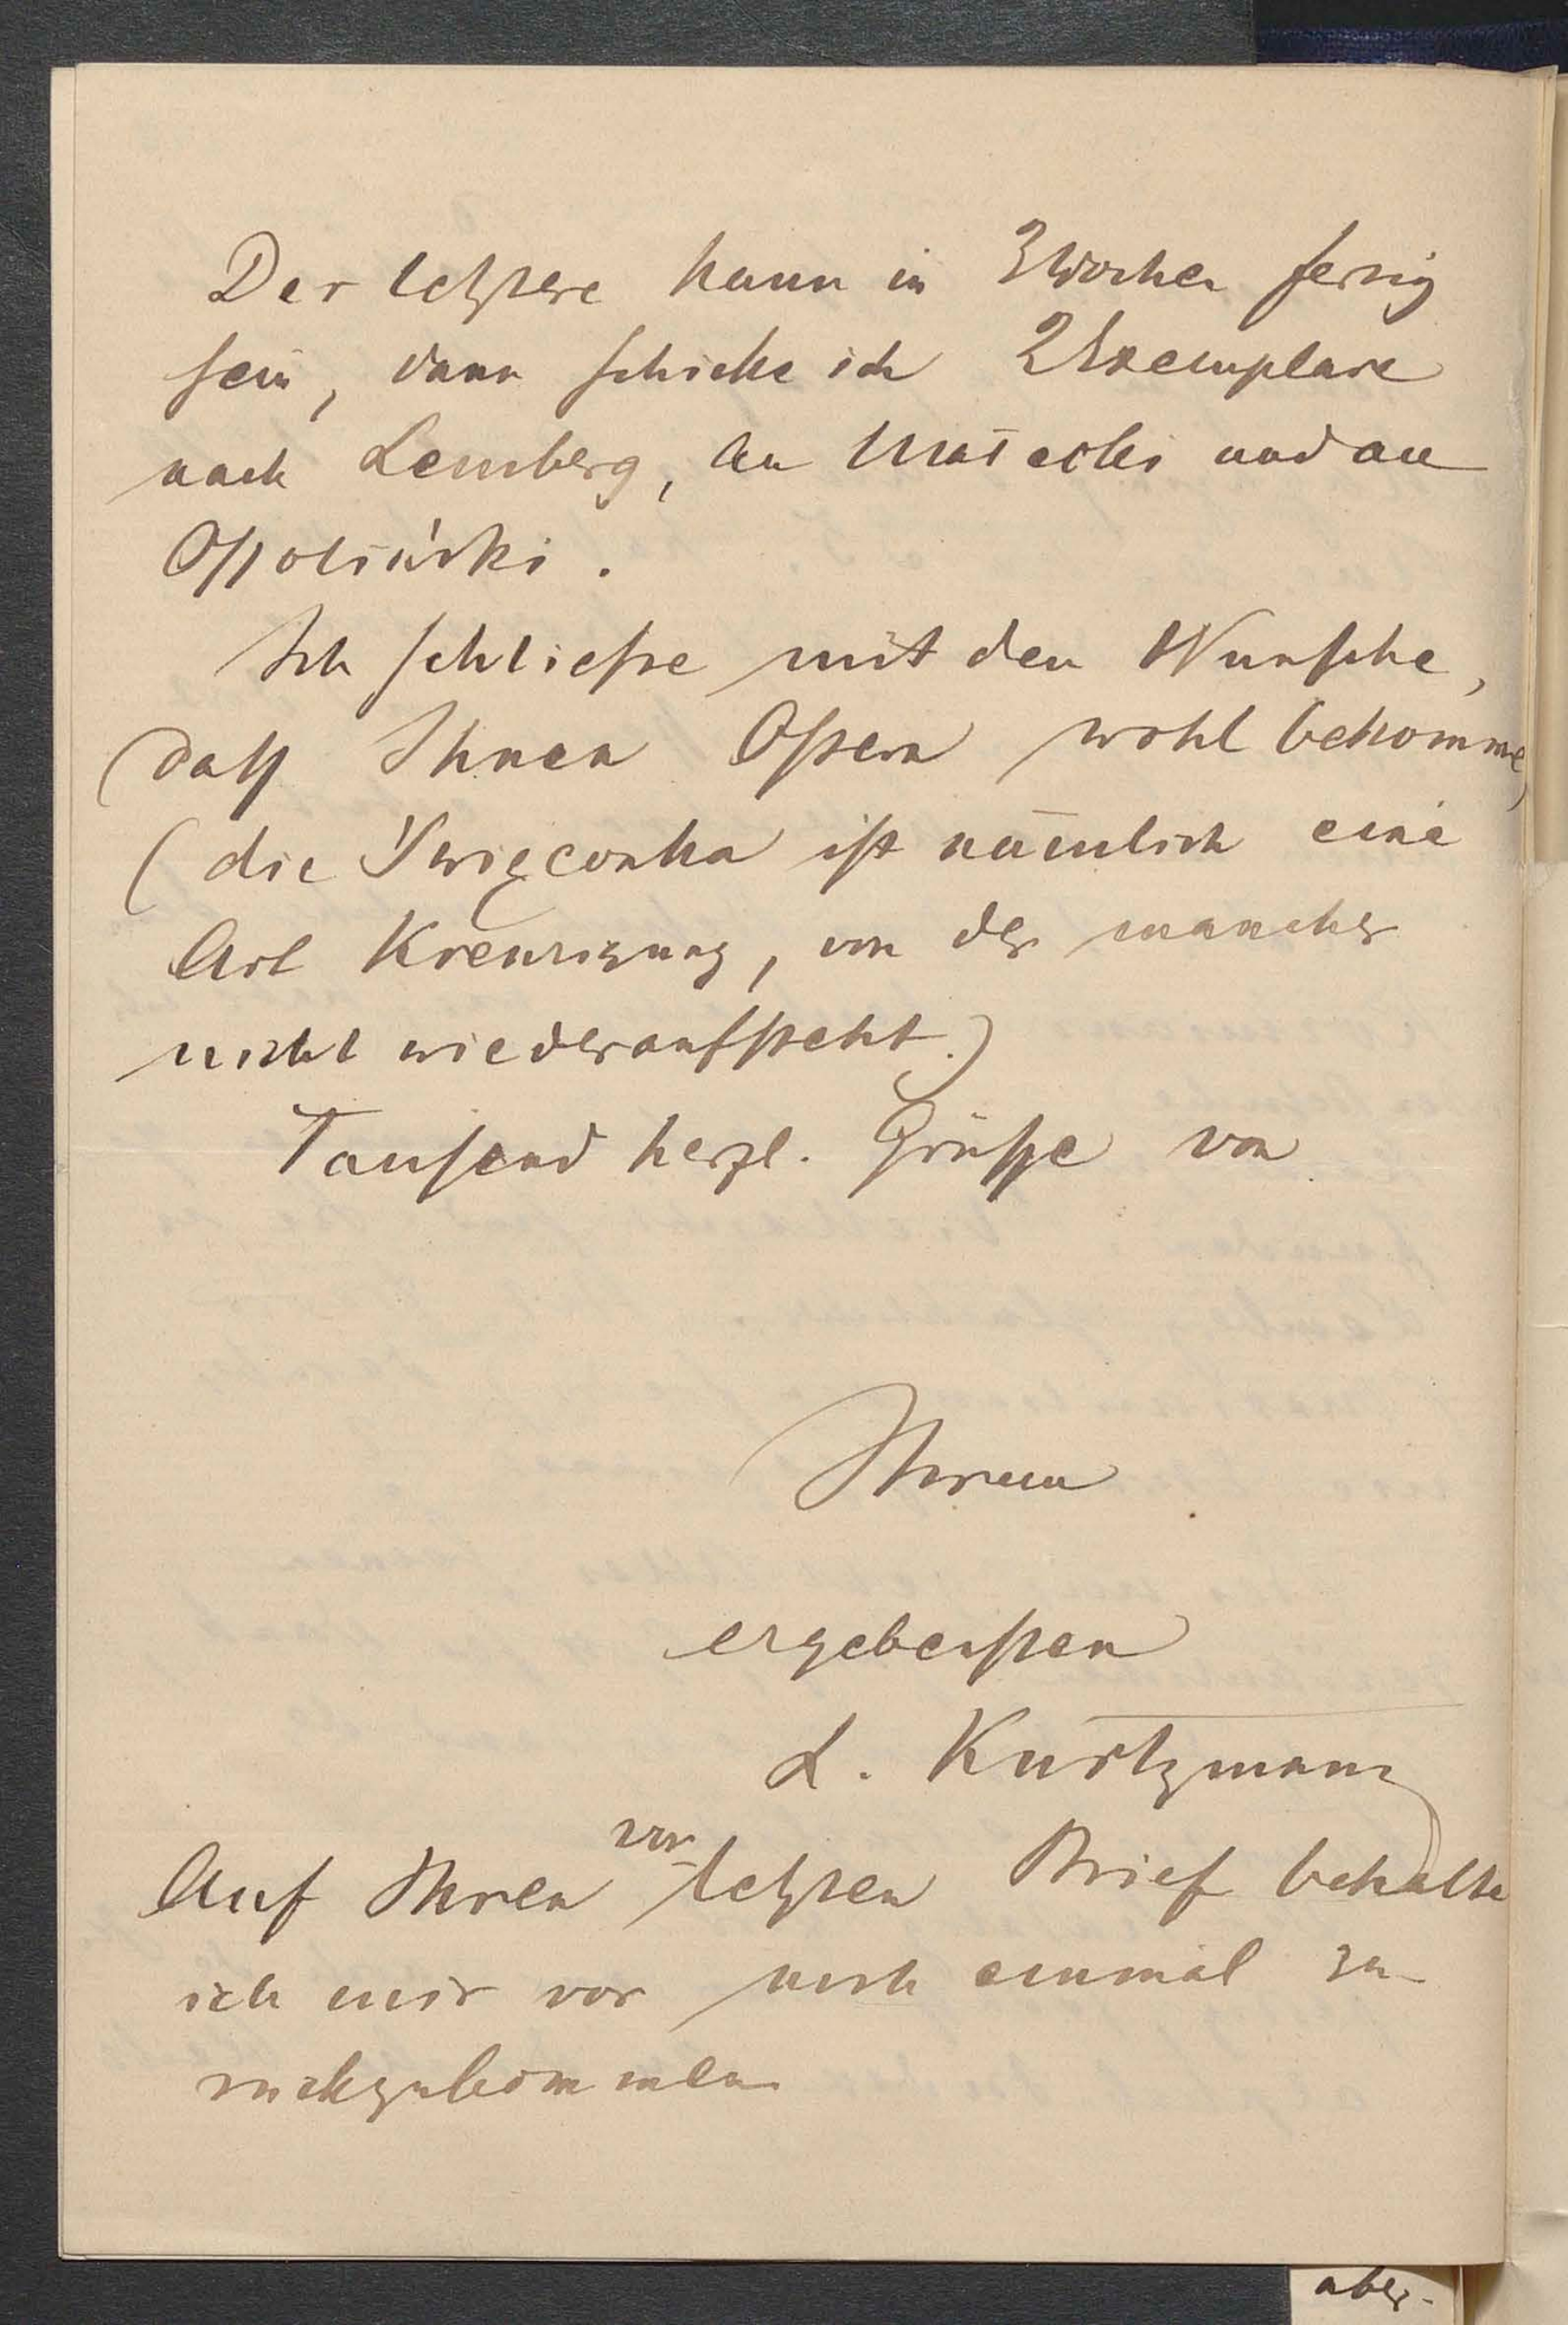 Der letztere kann in 3 Wochen fertig
sein, dann schicke ich 2 Exemplare
nach Lemberg, an Małecki und an
Opoliński.
Ich schliesse mit den Wunsche,
dass Ihnen Ostern wohl bekomme,
(die Święconka ist nämlich eine
Art Kreuzigung, von der mancher
nicht wiederaufsteht.)
Tausend herzl. Grüsse von
Ihrem
ergebensten
L. Kurtzmann
Auf Ihren vorletzten Brief behalte
ich mir vor noch einmal zu-
rückzukommen
aber-